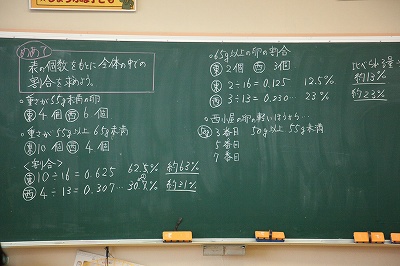 めあて
表の個数をもとに全体の中での
割合を求めよう。
○重さが55g未満の卵
東4個 西6個
○重さが55g以上65g未満
東10個 西4個
<割合>
東10÷16=0.625 62.5% 約63%
西4÷13=0.307… 30.7% 約31%
○65g以上の卵の割合
東2個 西3個
東2÷16=0.125 12.5%
西3÷13=0.230… 23%
比べられる量÷
約13%
約23%
○西小屋の卵の軽いほうから…
3番目 50g以上55g未満
5番目
7番目